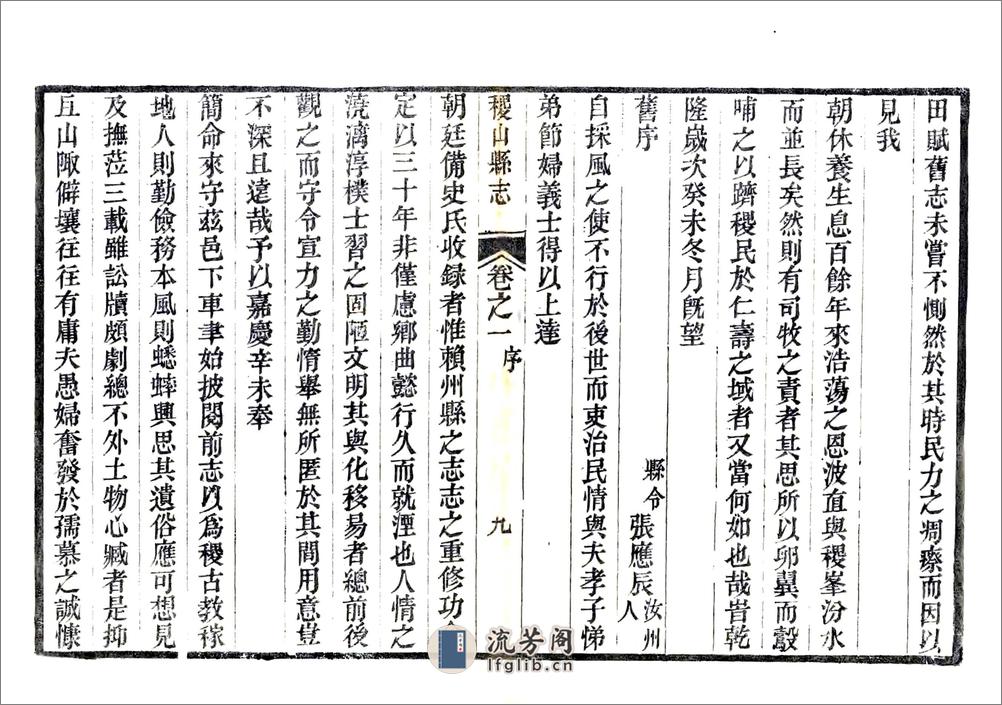 田賦舊志未嘗不惻然於其時民力之凋瘵而因以
見我
朝休養生息百餘年來浩蕩之恩波直與稷峯汾水
而並長矣然則有司牧之責者其思所以卵翼而鷇
哺之以躋稷民於仁壽之域者又當何如也哉旹乾
隆歲次癸未冬月旣望
舊序
縣令張應辰汝州人
自採風之使不行於後世而吏治民情與夫孝子悌
弟節婦義士得以上達
稷山縣志 卷之一 序 九
朝廷備史氏收録者惟賴州縣之志志之重修功令
定以三十年非僅慮鄉曲懿行久而就湮也人情之
澆漓淳樸士習之固陋文明其與化移易者總前後
觀之而守令宣力之勤惰舉無所匿於其間用意豈
不深且遠哉予以嘉慶辛未奉
簡命來守茲邑下車聿始披閱前志以爲稷古教稼
地人則勤儉務本風則蟋蟀興思其遺俗應可想見
及撫蒞三載雖訟牘頗劇總不外土物心臧者是抑
且山陬僻壤往往有庸夫愚婦奮發於孺慕之誠慷
流芳阁
lfglib.cn